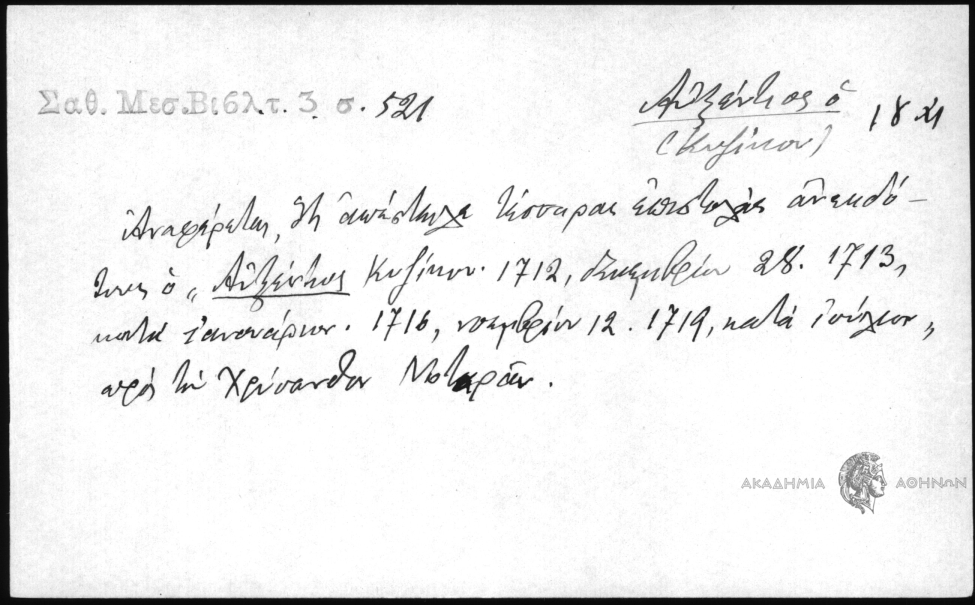 Σαθ. Μεσ. Βιβλ τ. 3 σ. 521
Αὐξέντιος ὁ
(Κυζίκου)
18
Ἀναφέρεται, ὅτι ἀπέστειλε τέσσαρας ἐπιστολὰς ἀνεκδό-
τους ὁ „Αὐξέντιος Κυζίκου. 1712, δεκεμβρίου 28. 1713,
κατὰ ἰανουάριον. 1716, νοεμβρίου 12. 1719, κατὰ ἰούλιον„
πρὸς τὸν Χρύσανθον Νοταρᾶν.
ΑΚΑΔΗΜΙΑ ΑΘΗΝΩΝ